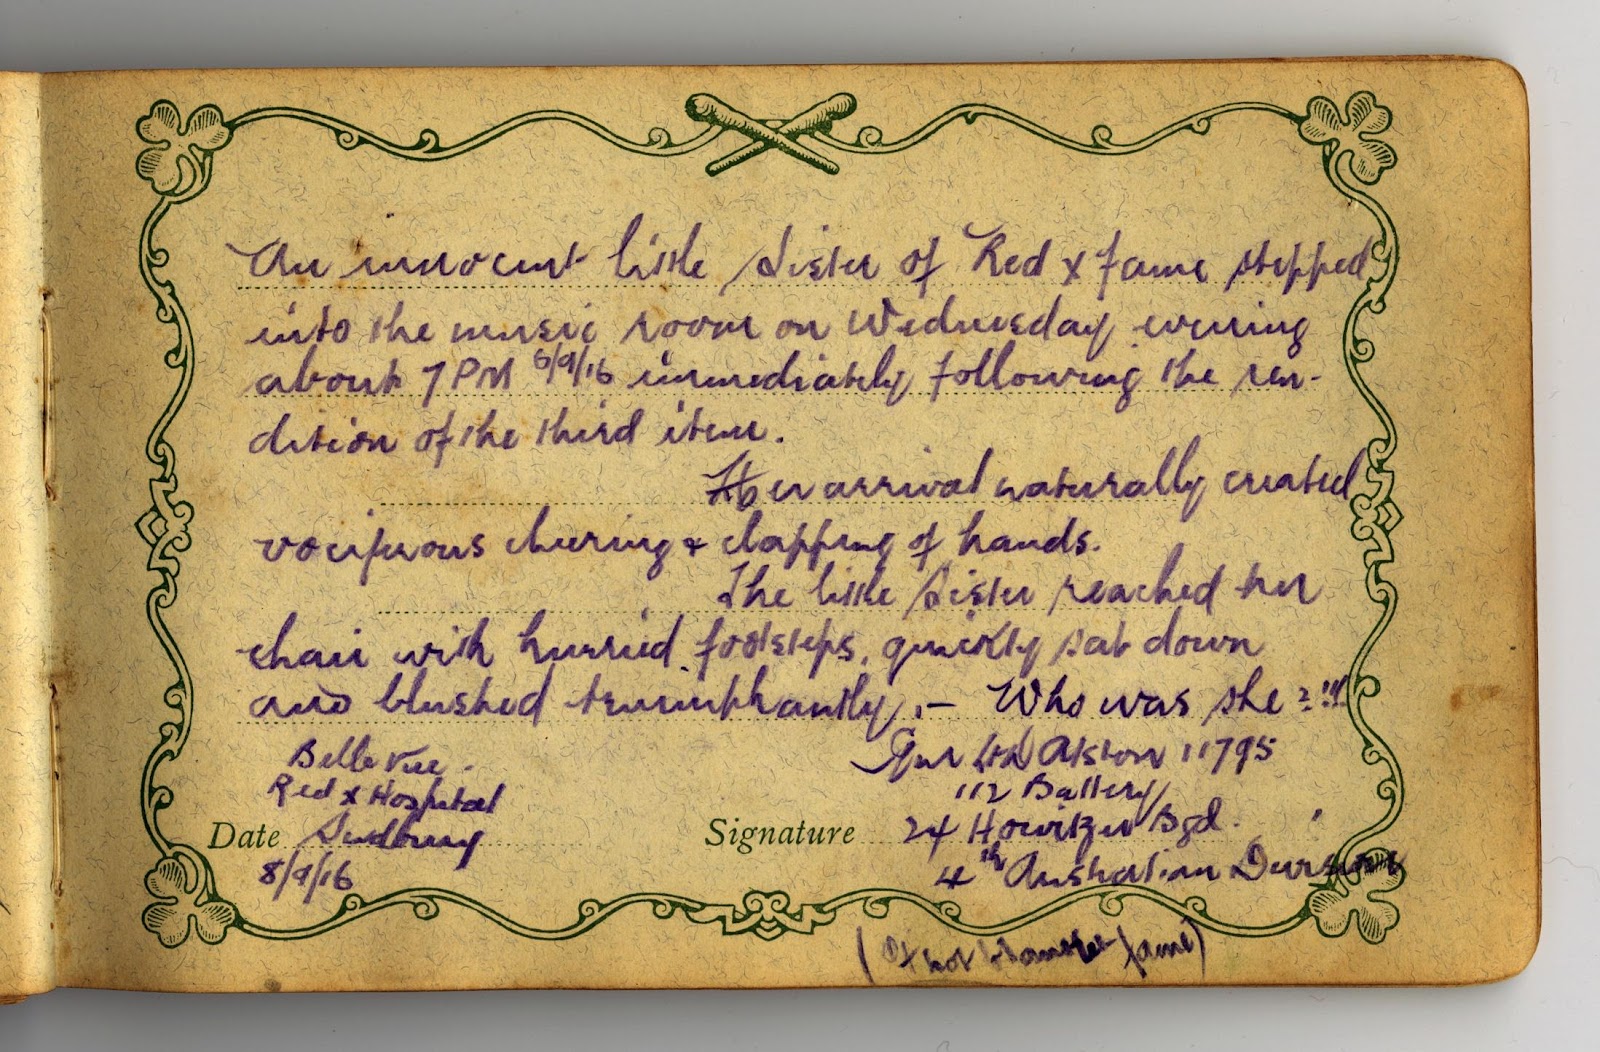 An innocent little Sister of Red x fame stepped
into the music room on Wednesday evening
about 7 PM 6/9/16 immediately following the ren-
dition of the third item.
Her arrival naturally created
vociferous cheering & clapping of hands.
The little Sister reached her
chair with hurried footsteps, quickly sat down
and blushed triumphantly, — Who was she ? !!!
Belle Vue.
Red x Hospital
Date Sudbury
8/9/16
Gnr Alston 11795
112 Battery
Signature 24 Howitzer Bgd.
4th Australian Division
fame)